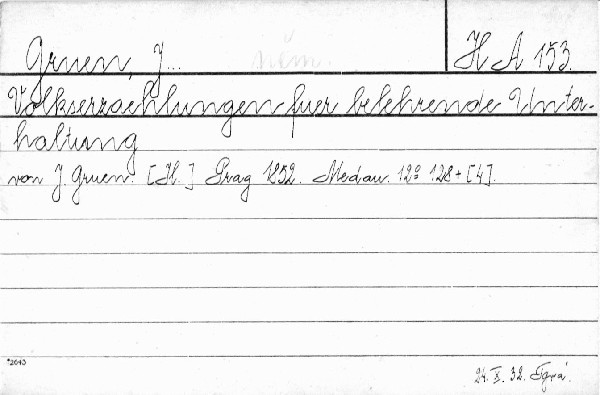 Gruen, J... něm. H A 153.
Volkserzaehlungen fuer belehrende Unter-
haltung
von J. Gruen. [H.] Prag 1852. Medau. 12° 128 + [4].
*2643
24. X. 32.